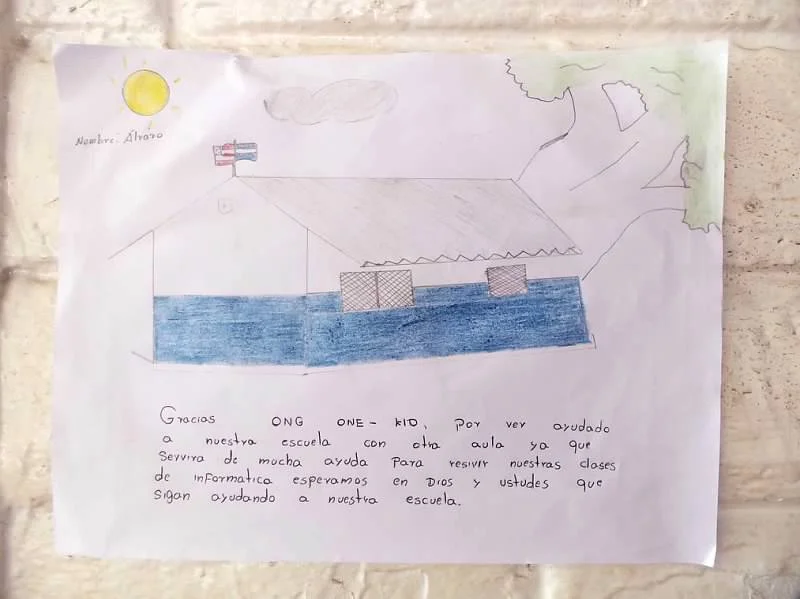 Nombre: Alvaro
Gracias ONG ONE-KID, Por ver ayudado
a nuestra escuela con otra aula ya que
Servira de mucha ayuda Para resivir nuestras clases
de informatica esperamos en Dios y ustudes que
Sigan ayudando a nuestra escuela.